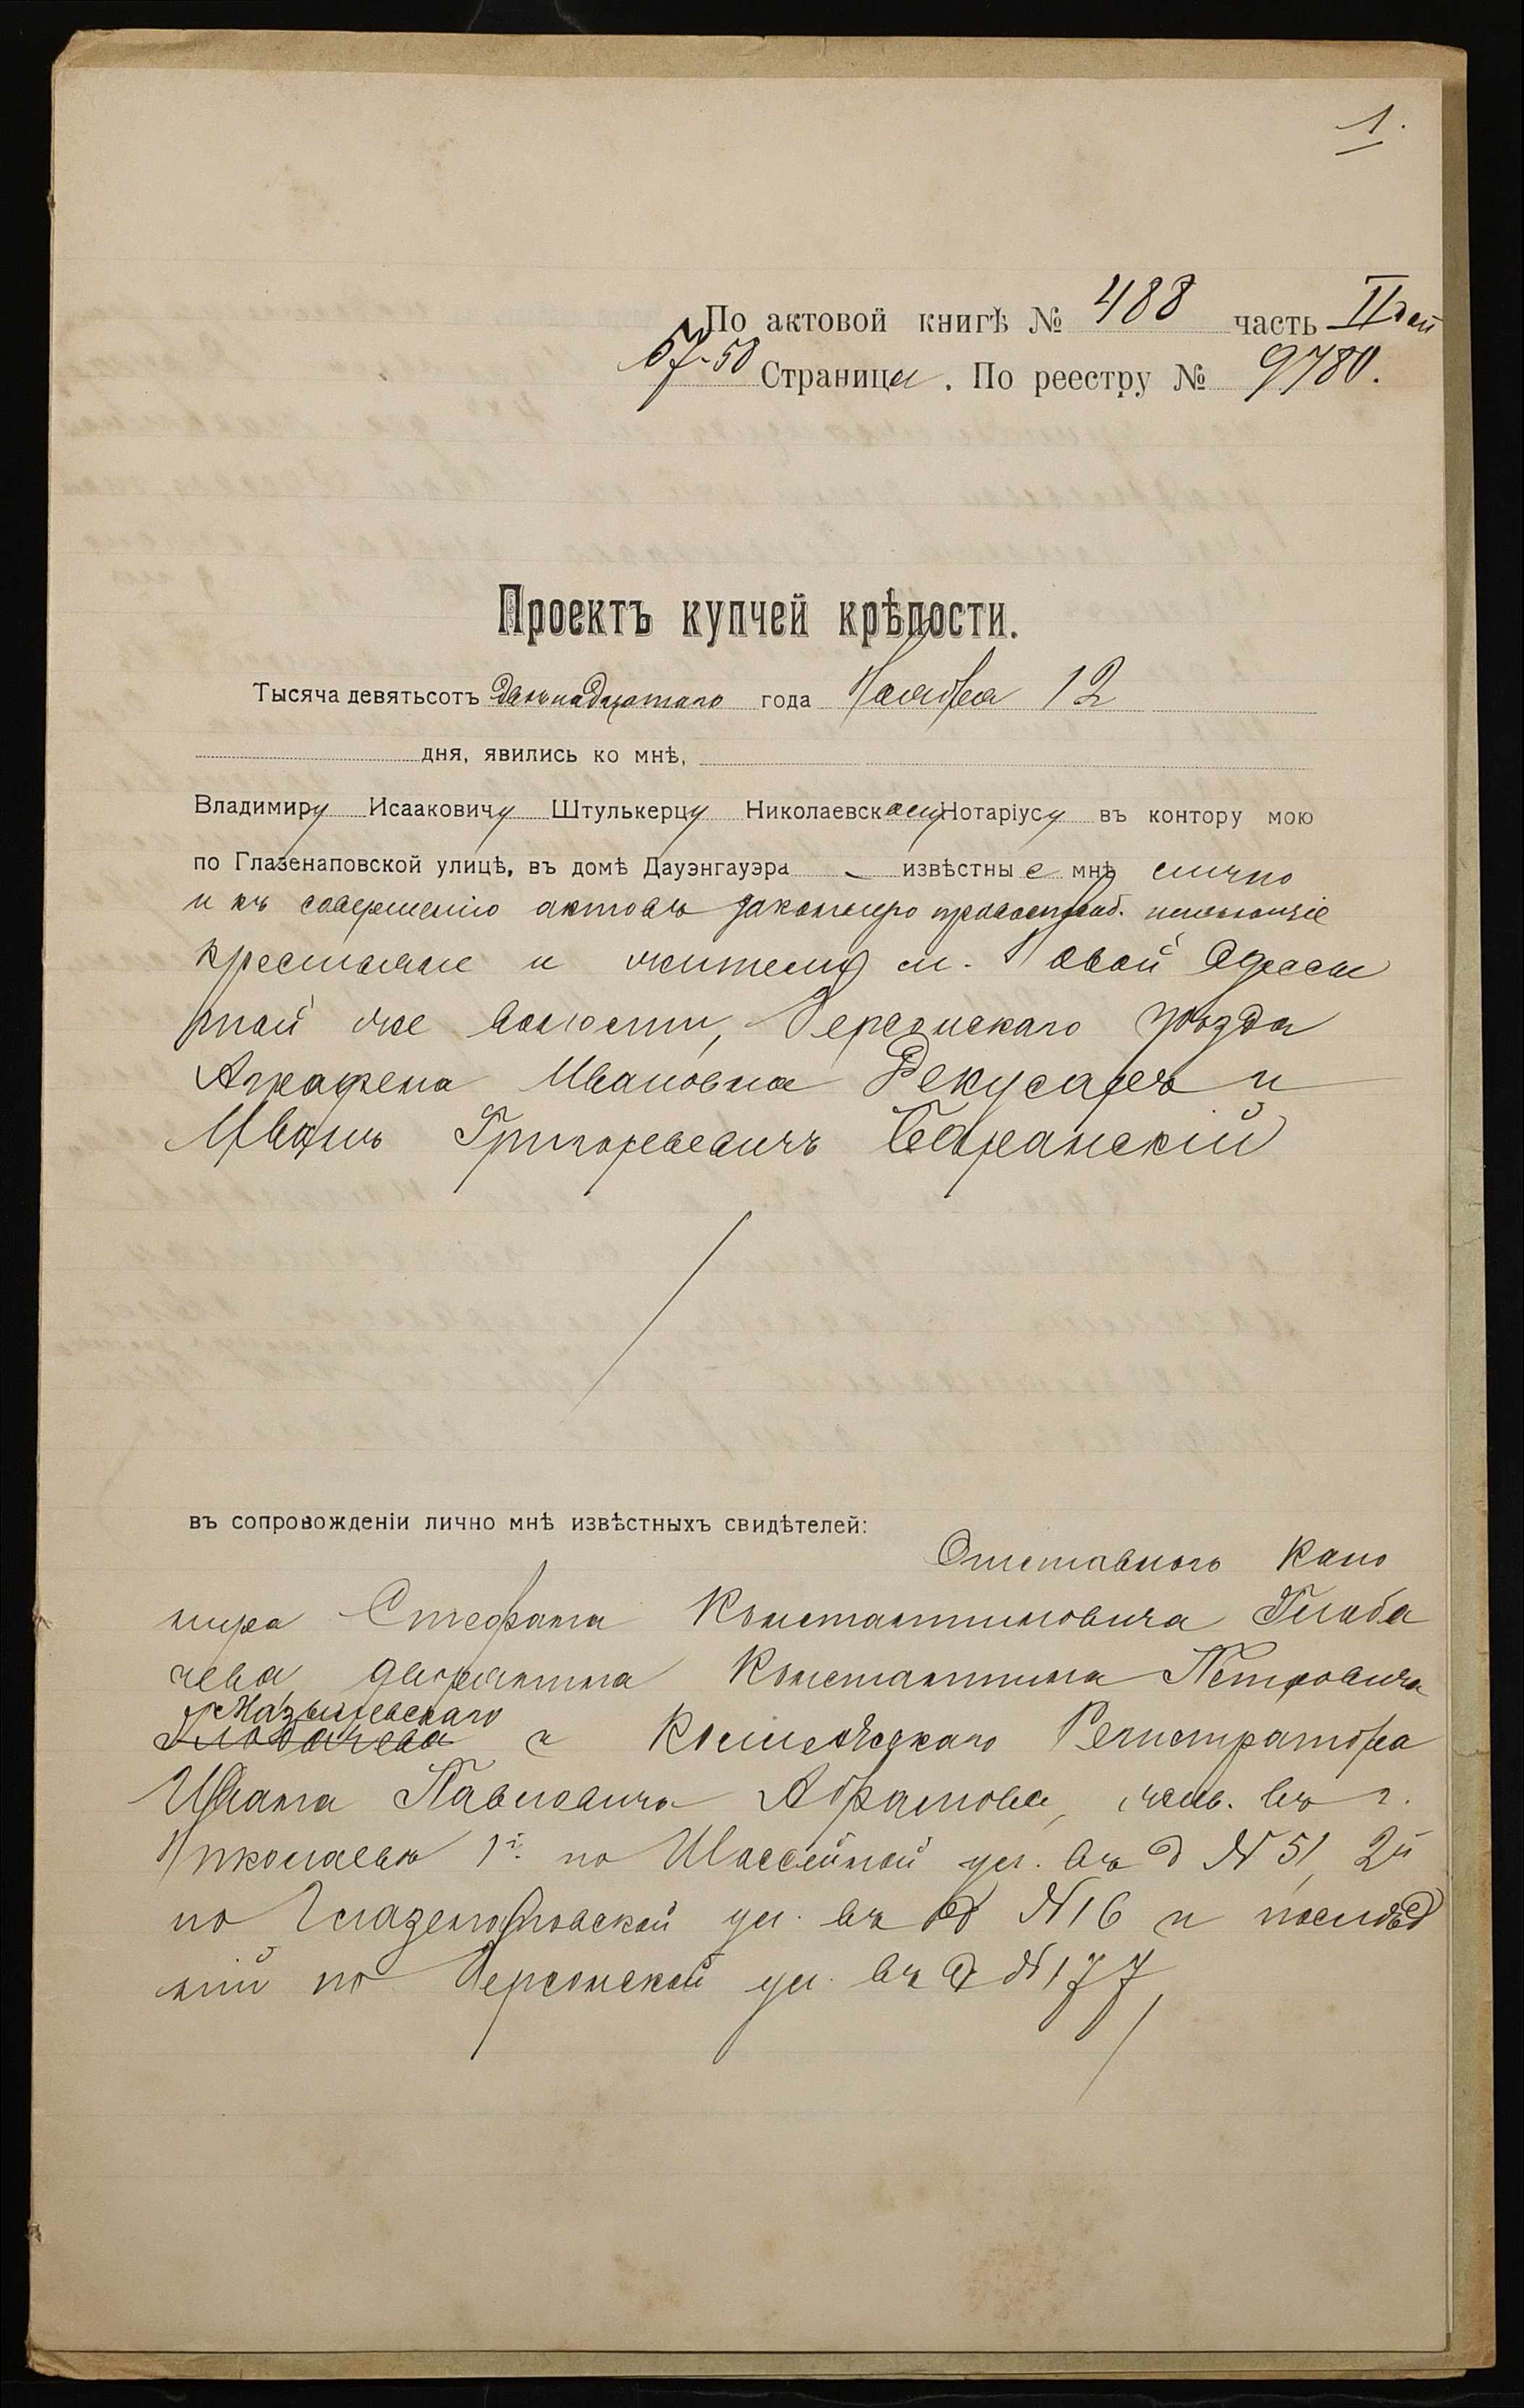 1.
По актовой книгѣ № 488 часть II-ой
57-58 Страницы. По реестру № 9780.
Проектъ купчей крѣпости.
Тысяча девятьсотъ двѣнадцатаго года Ноября 12
дня, явились ко мнѣ,
Владимиру Исааковичу Штулькерцу Николаевскому Нотаріусу въ контору мою
по Глазенаповской улицѣ, въ домѣ Дауэнгауэра извѣстные мнѣ лично
и къ совершенію актовъ законную правоспособ. имѣющіе
крестьяне и жители м. Новой Одессы
той же волости, Херсонскаго уѣзда
Агафена Ивановна Рекусаръ и
Иванъ Григорьевичъ Бабранскій
въ сопровожденіи лично мнѣ извѣстныхъ свидѣтелей:
Отставного Кано
нира Стефана Константиновича Глоба
чева, дворянина Константина Петровича
Глобачева и Коллежскаго Регистратора
Ивана Павловича Абрамова, жив. въ г.
Николаевѣ 1й по Шоссейной ул. въ д № 51, 2й
по Глазенаповской ул. въ д № 16 и послѣд
ній по Херсонской ул. въ д № 177,